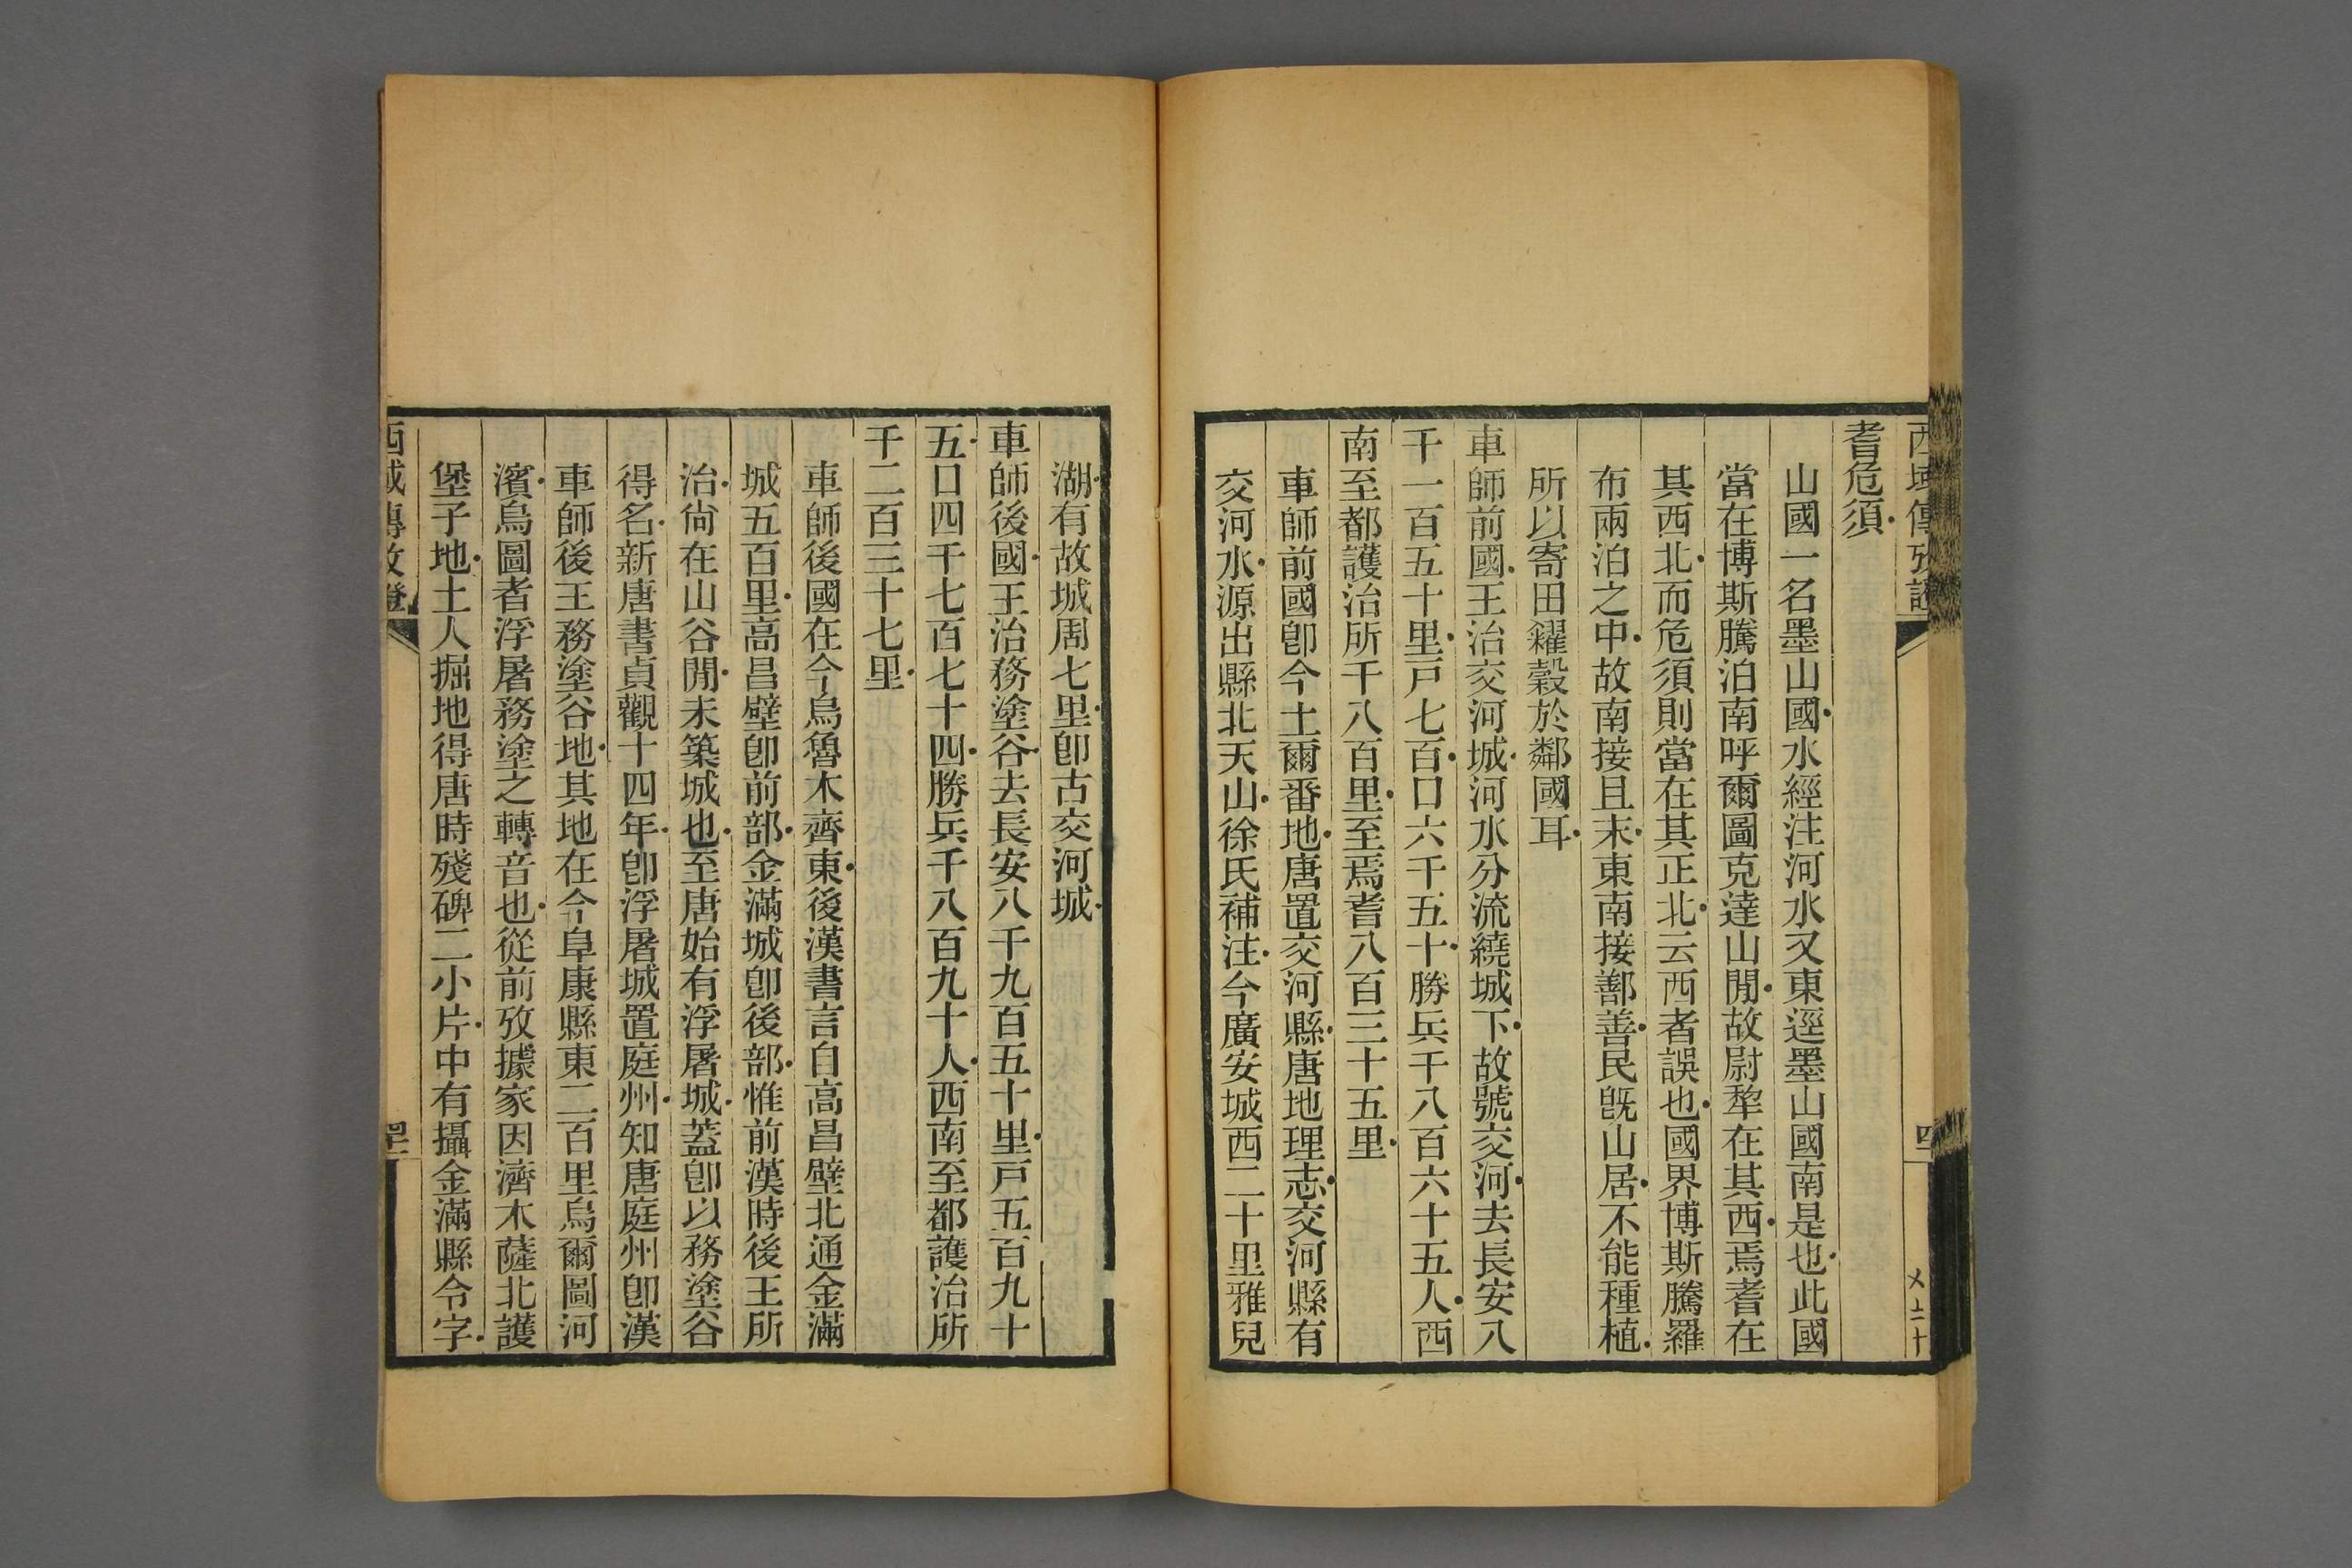 耆危須
山國一名墨山國水經注河水又東逕墨山國南是也此國
當在博斯騰泊南呼爾圖克達山閒故尉犂在其西焉耆在
其西北而危須則當在其正北云西者誤也國界博斯騰羅
布兩泊之中故南接且末東南接鄯善民旣山居不能種植
所以寄田糴穀於鄰國耳
車師前國王治交河城河水分流繞城下故號交河去長安八
千一百五十里戸七百口六千五十勝兵千八百六十五人西
南至都護治所千八百里至焉耆八百三十五里
車師前國卽今土爾番地唐置交河縣唐地理志交河縣有
交河水源出縣北天山徐氏補注今廣安城西二十里雅兒
湖有故城周七里卽古交河城
車師後國王治務塗谷去長安八千九百五十里戸五百九十
五口四千七百七十四勝兵千八百九十人西南至都護治所
千二百三十七里
車師後國在今烏魯木齊東後漢書言自高昌壁北通金滿
城五百里高昌壁卽前部金滿城卽後部惟前漢時後王所
治尙在山谷閒未築城也至唐始有浮屠城蓋卽以務塗谷
得名新唐書貞觀十四年卽浮屠城置庭州知唐庭州卽漢
車師後王務塗谷地其地在今阜康縣東二百里烏爾圖河
濱烏圖者浮屠務塗之轉音也從前攷據家因濟木薩北護
堡子地土人掘地得唐時殘碑二小片中有攝金滿縣令字
西域傳攷證